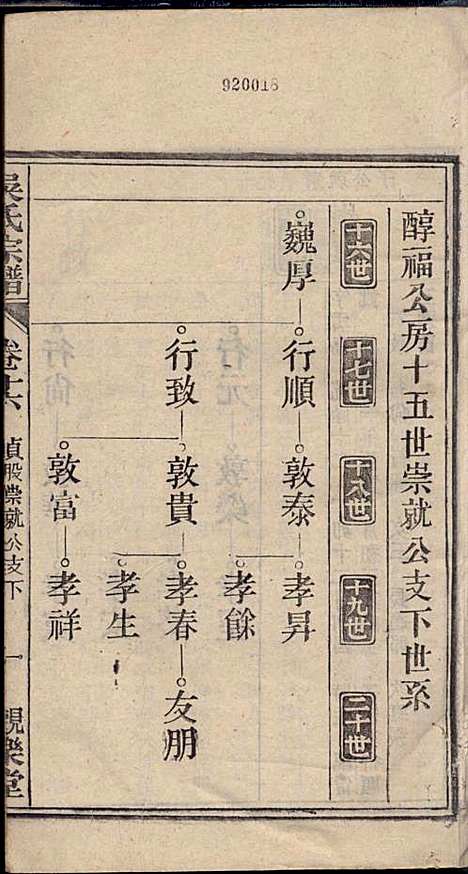 920018
醇福公房十五世崇就公支下世系
十六世
十七世
十八世
十九世
二十世
巍厚
行順
敦泰
孝昇
孝餘
行致
敦貴
孝春
友朋
孝生
敦富
孝祥
吳氏宗譜
卷十六
貞股崇就公支下
一